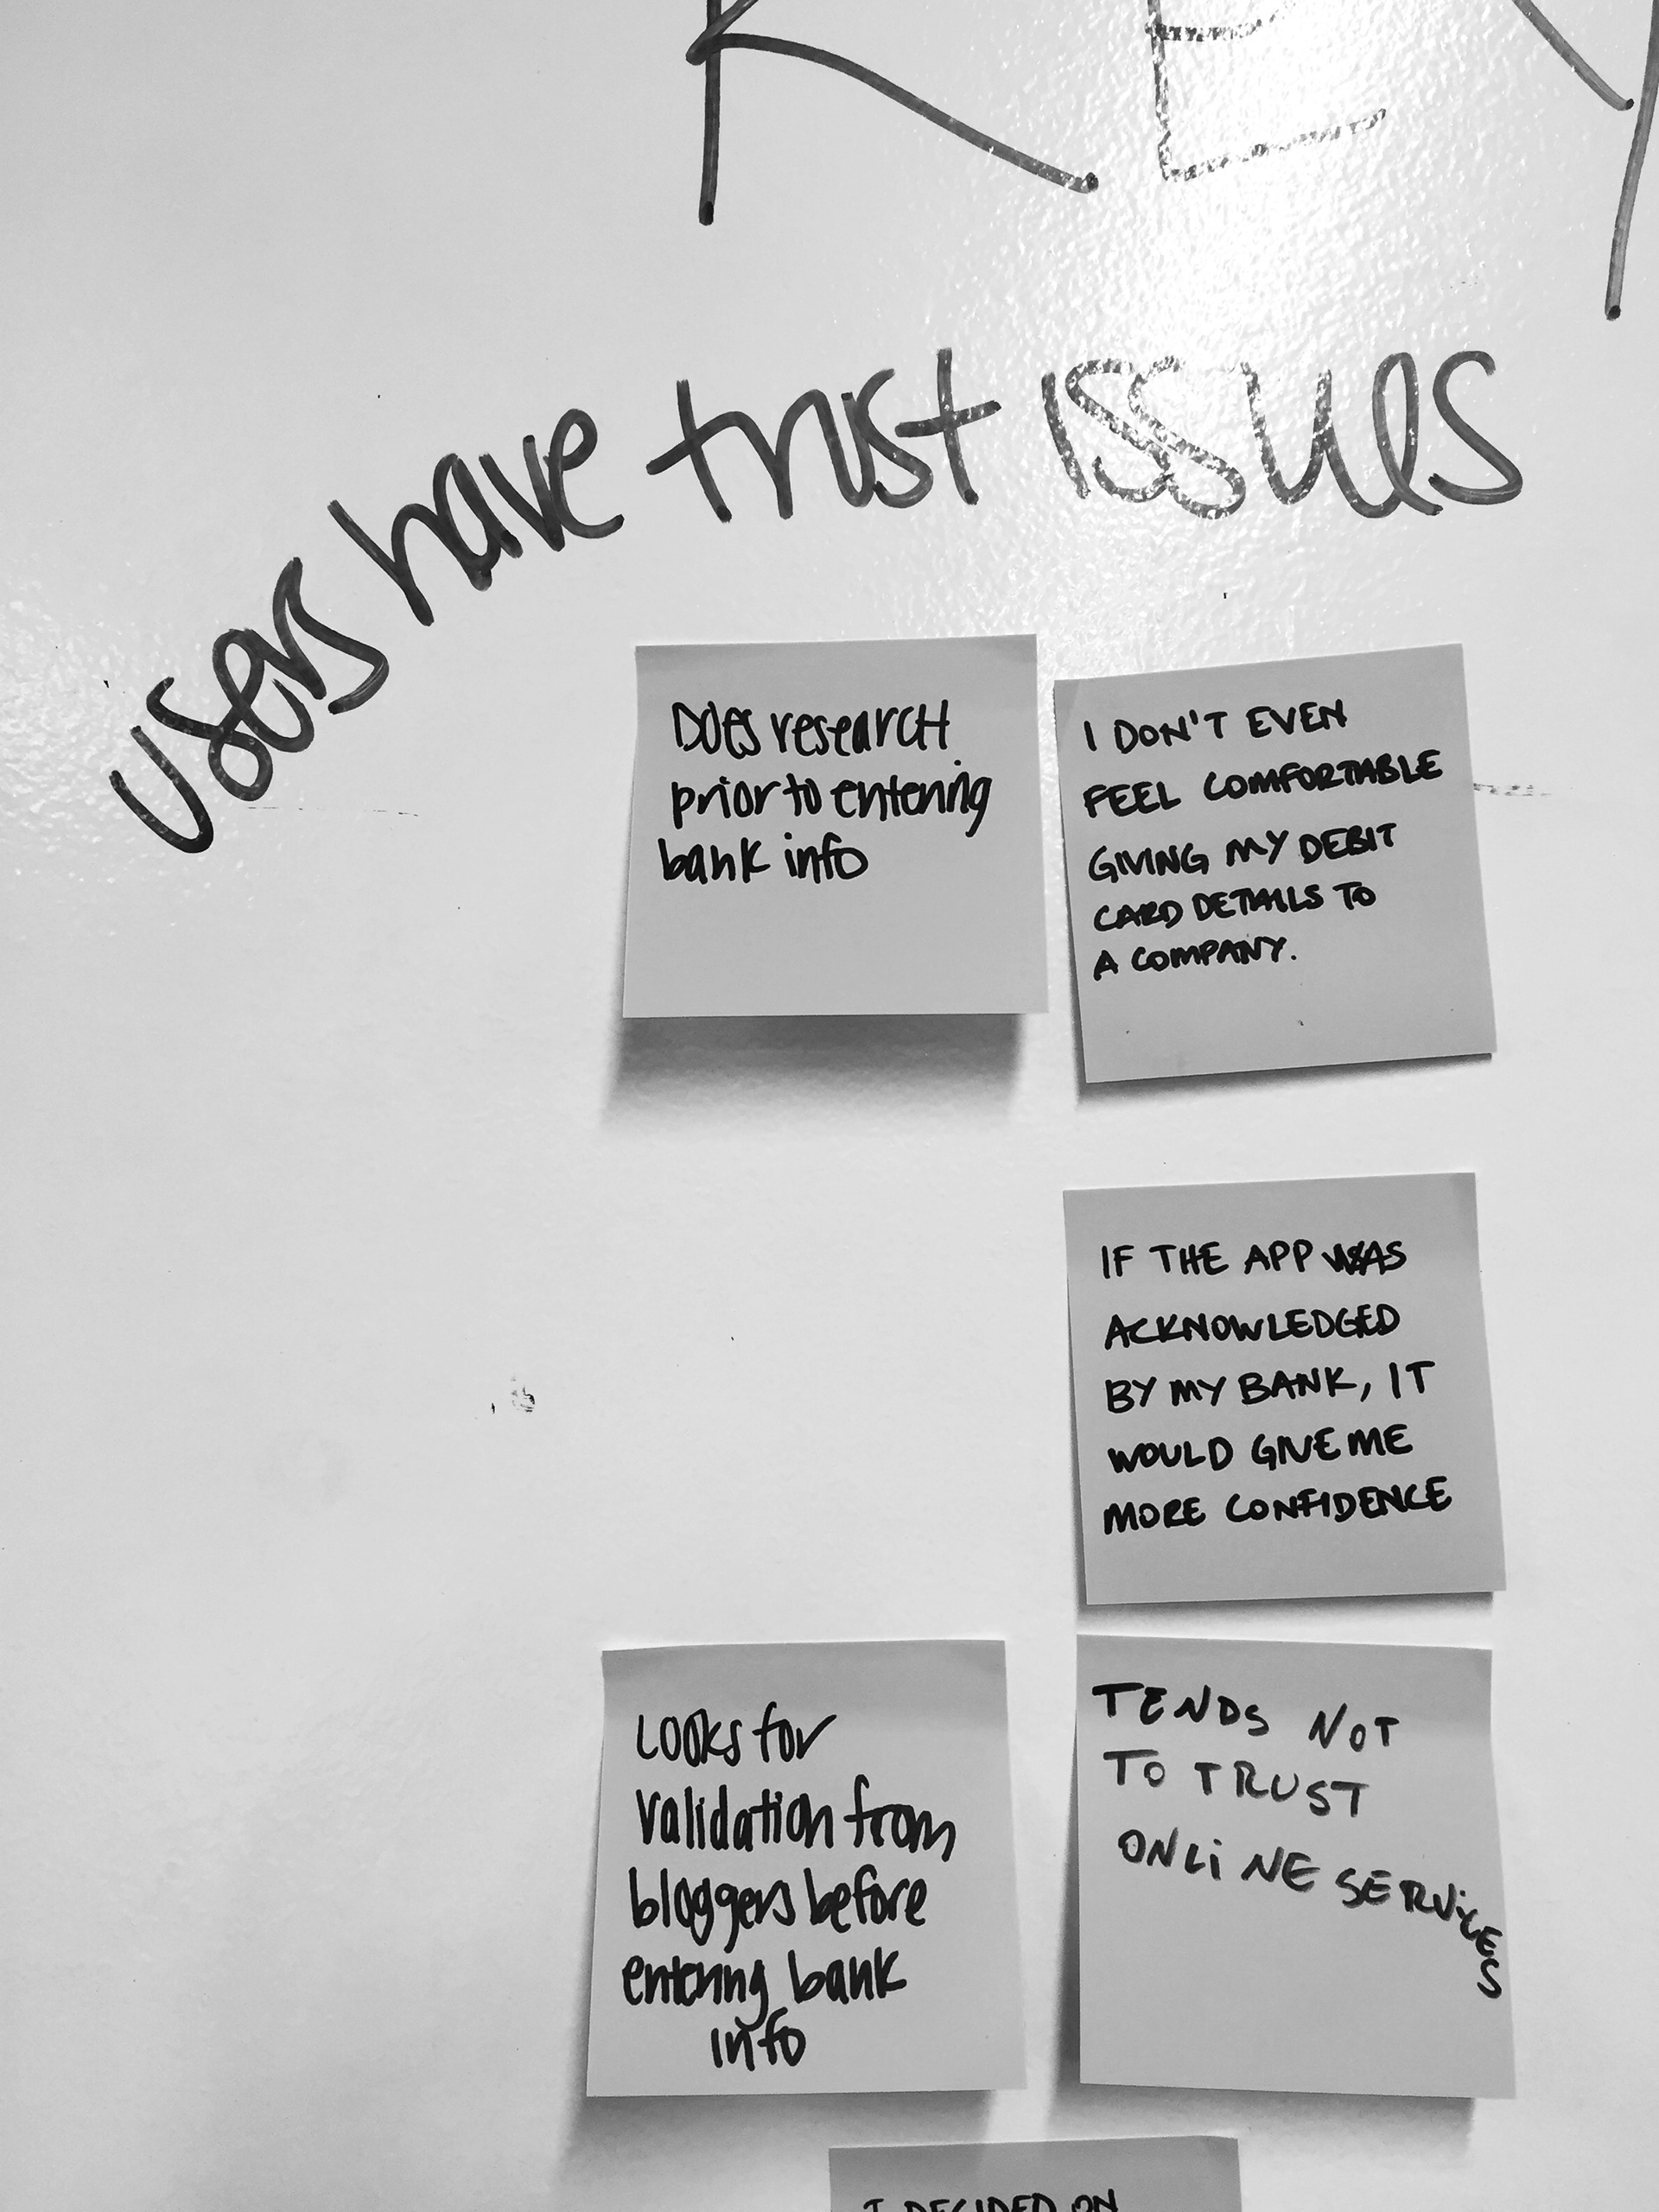 users have trust issues
Does research
prior to entering
bank info
I DON'T EVEN
FEEL COMFORTABLE
GIVING MY DEBIT
CARD DETAILS TO
A COMPANY.
IF THE APP WAS
ACKNOWLEDGED
BY MY BANK, IT
WOULD GIVE ME
MORE CONFIDENCE
Looks for
validation from
bloggers before
entering bank
info
TENDS NOT
TO TRUST
ONLINE SERVICES
I DECIDED ON